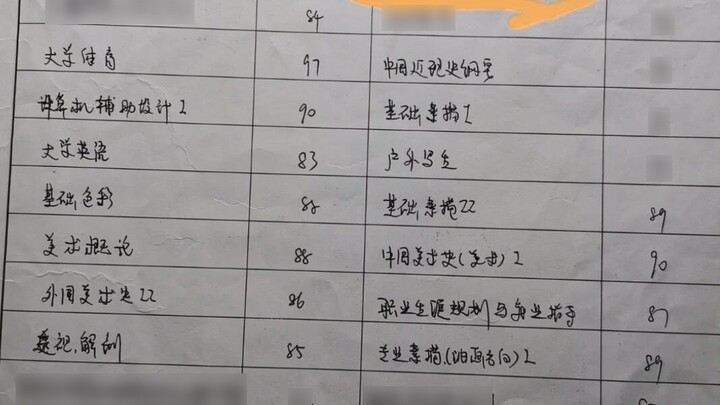 84
大学体育 97 中国近现史纲要
计算机辅助设计I 90 基础素描I
大学英语 83 户外写生
基础色彩 基础素描II 89
美术概论 88 中国美术史(美术)I 90
外国美术史II 86 职业生涯规划与就业指导 87
透视.解剖 85 专业素描(油画方向)I 89